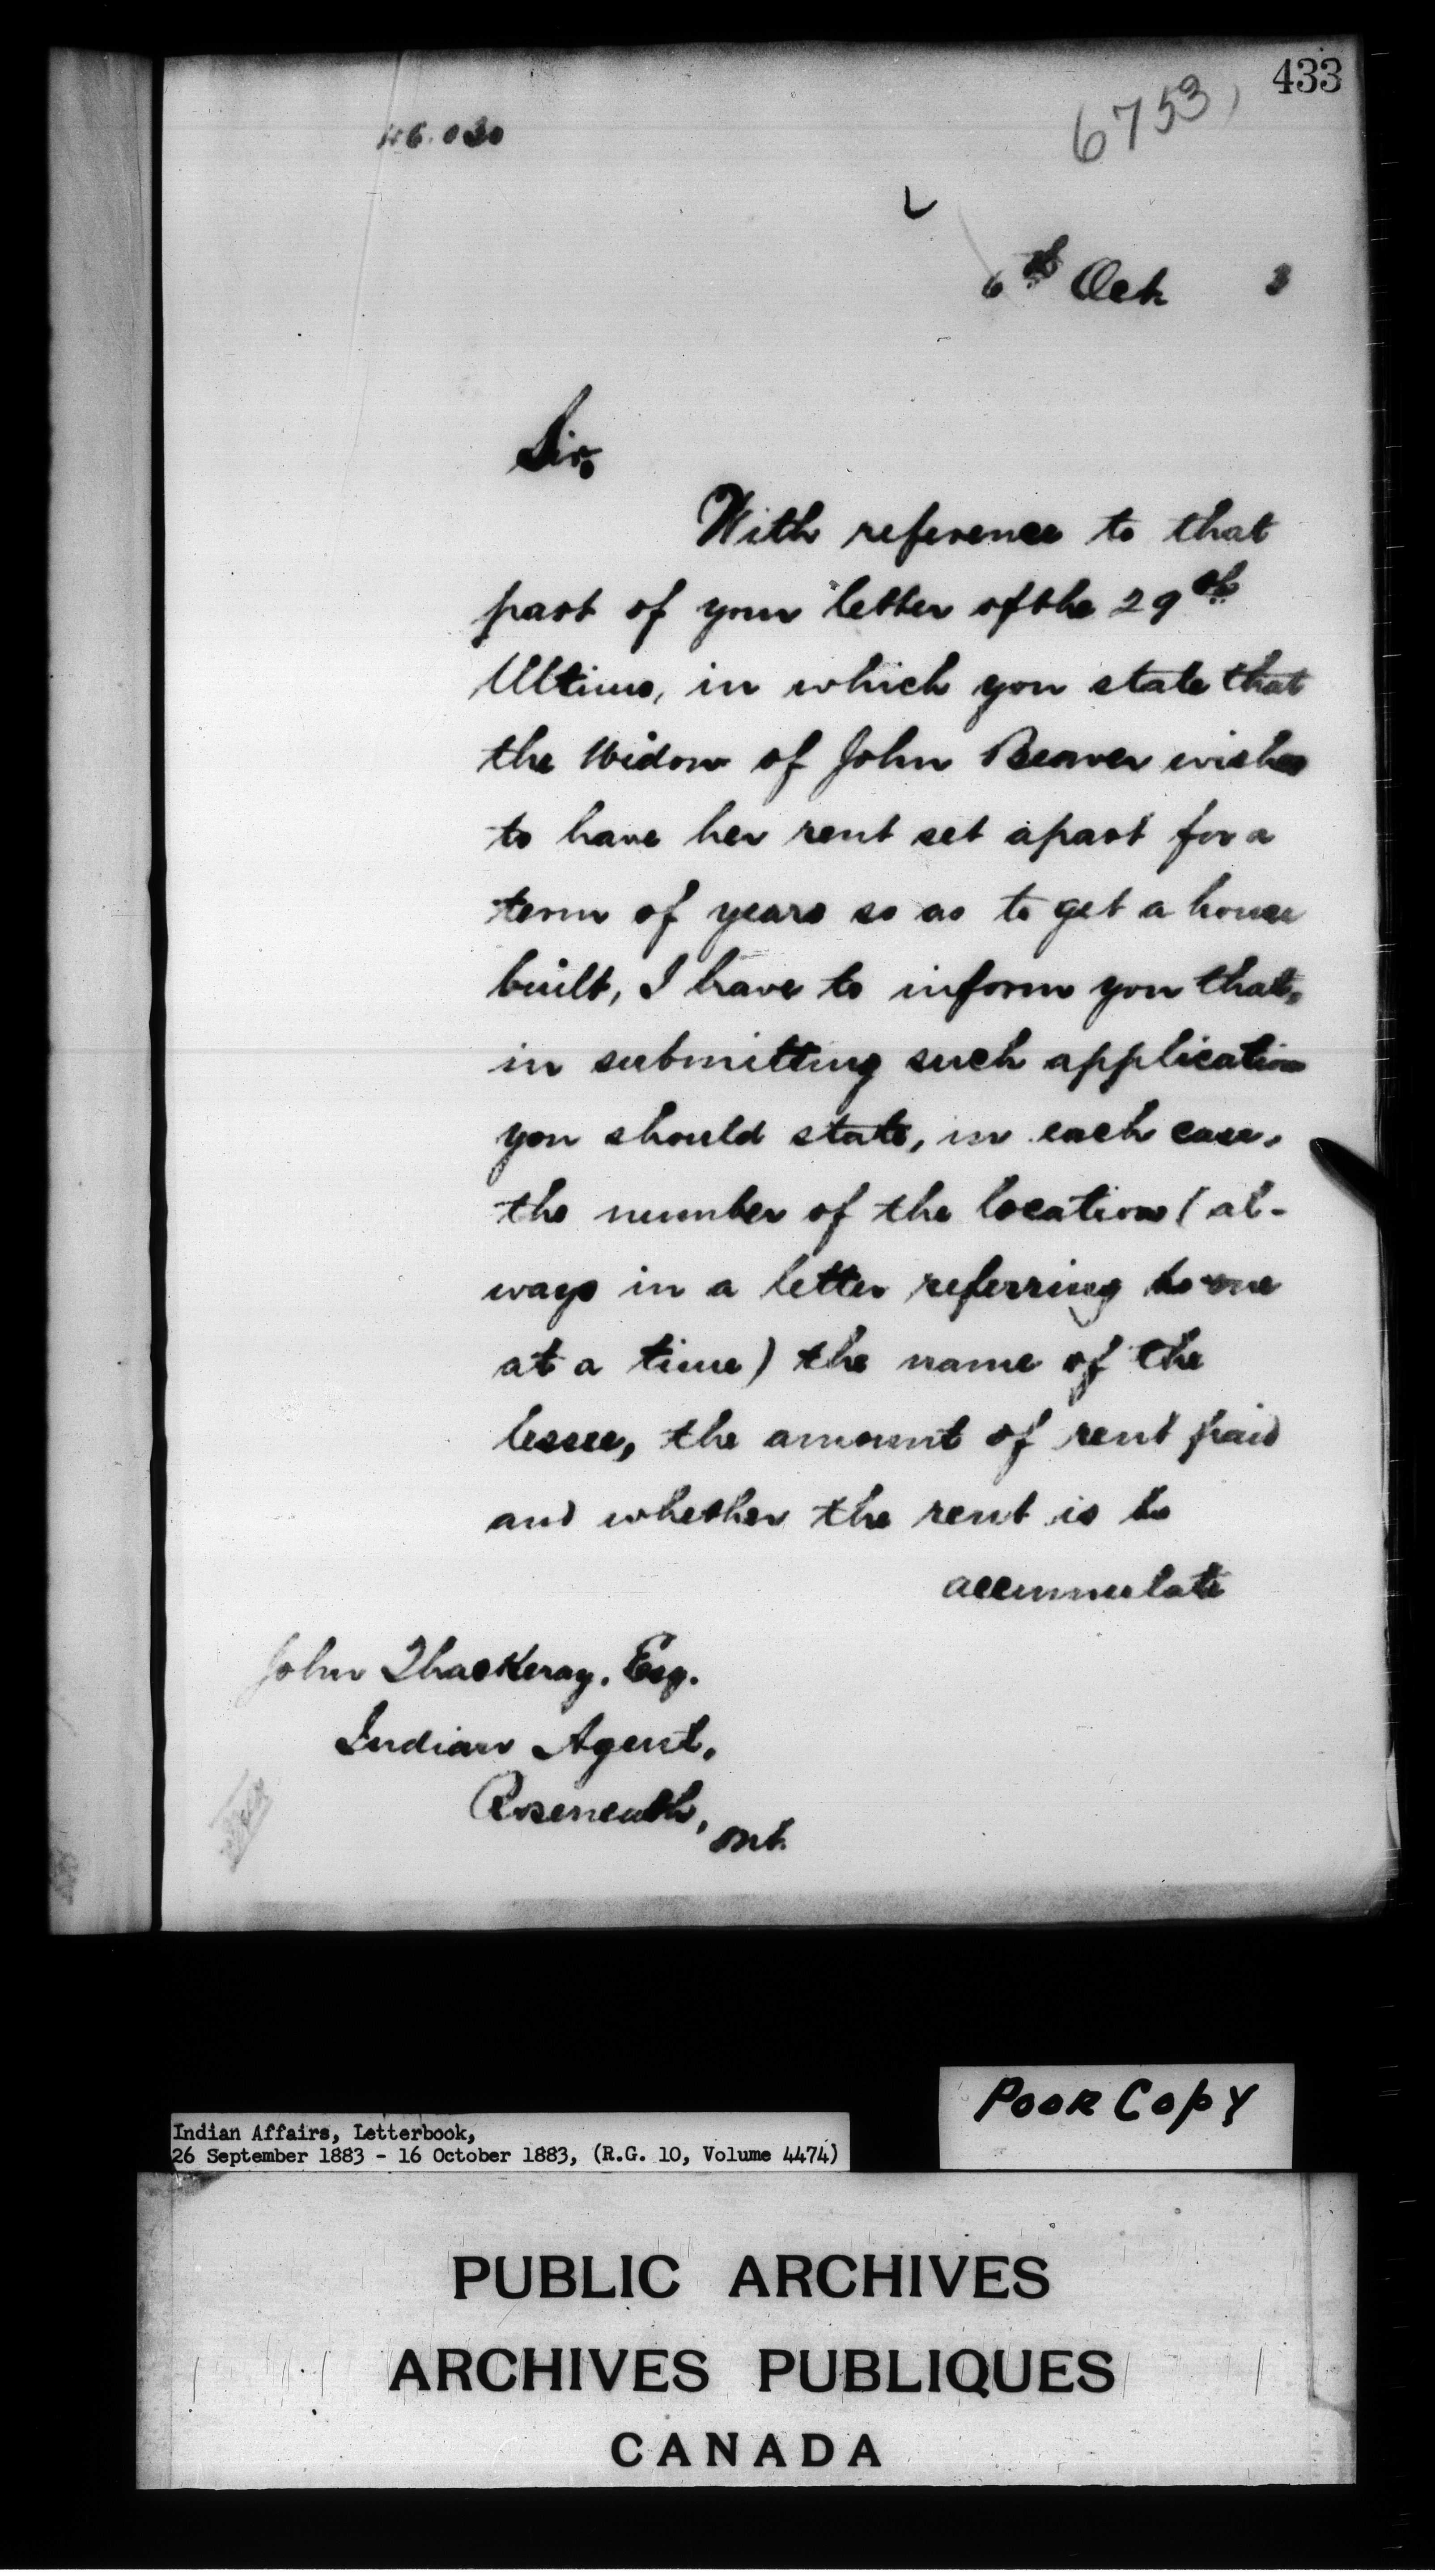 433
6753
46.030
6th Oct 3
Sir,
With reference to that
part of your letter of the 29th
Ultimo, in which you state that
the Widow of John Beaver wishes
to have her rent set apart for a
term of years so as to get a house
built, I have to inform you that,
in submitting such application
you should state, in each case,
the number of the location (al-
ways in a letter referring to one
at a time) the name of the
lessee, the amount of rent paid
and whether the rent is to
accumulate
John Thackeray, Esq.
Indian Agent,
Roseneath,
Ont.
Poor Copy
Indian Affairs, Letterbook,
26 September 1883 - 16 October 1883, (R.G. 10, Volume 4474)
PUBLIC ARCHIVES
ARCHIVES PUBLIQUES
CANADA